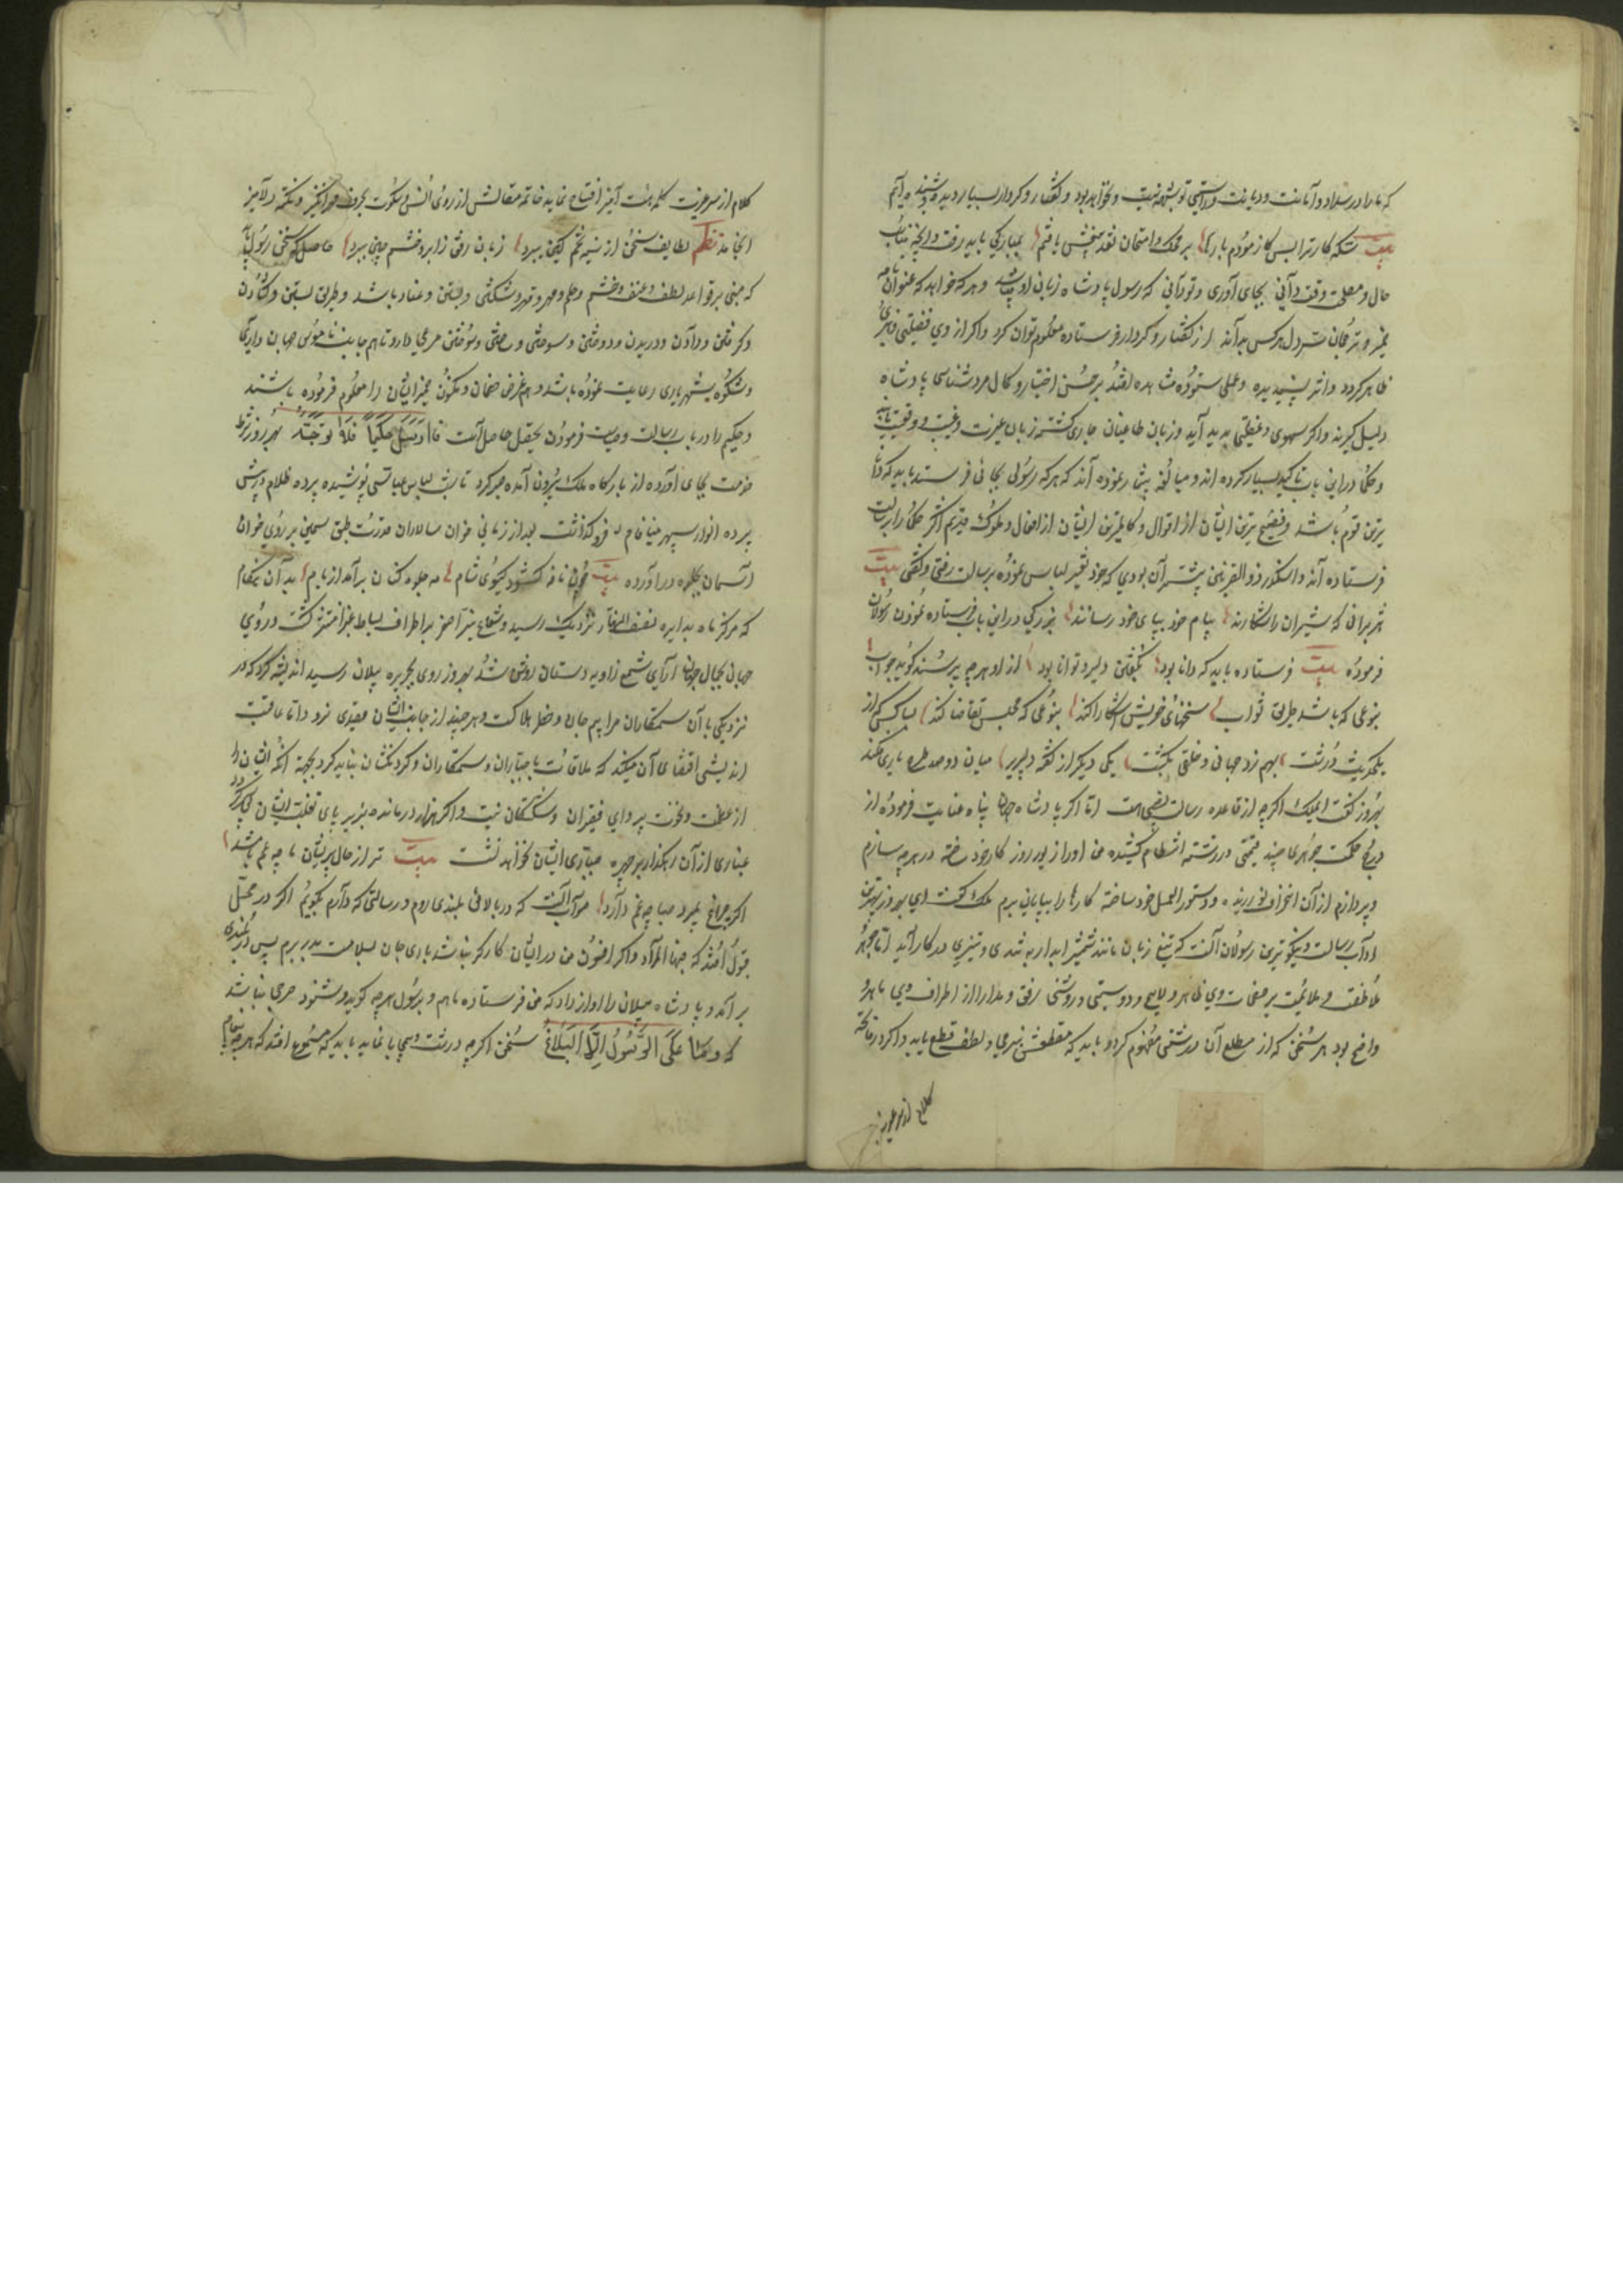 که ما را در سداد و امانت و دیانت و راستی تو شبهه نیست و نخواهد بود و گفتار و کردار بسیار دیده و شنیده ایم
بیت که کار ترا بس کاز مودم بارها بر محک امتحان نقد بیغش یافتم بمبارکی باید رفت و آنچه مناسب
حال و مصلحت وقت دانی بجای آوری و تو دانی که رسول پادشاه زبان او باشد و هر که خواهد که عنوان نامه
ضمیر و ترجمان سر دل هر کس بداند از گفتار و کردار فرستاده معلوم توان کرد و اکر از وی فضیلتی و هنری
ظاهر کردد و اثر پسندیده و عملی ستوده مشاهده افتد بر حسن اختیار و کمال مردشناسی پادشاه
دلیل گیرند و اکر سهوی و غفلتی پدید آید زبان طاعنان جاری گشته زبان غیرت و غیبت و وقیعت یابند
و حکما در این باب تاکید بسیار کرده اند و مبالغه بیشتر نموده اند که هر که رسولی بجائی فرستد باید که دانا
ترین قوم باشد و فصیح ترین ایشان از اقوال و کاملترین ایشان از افعال و ملوک قدیم اکثر حکما را برسالت
فرستاده اند و اسکندر ذو القرنین بیشتر آن بودی که خود تغیر لباس نموده برسالت رفتی و گفتی بیت
هژبرانی که شیران را شکارند پیام خود بپای خود رسانند بزرگی در این باب فرستاده نمودن رسولان
فرموده بیت فرستاده باید که دانا بود بگفتن دلیر و توانا بود از او هر چه پرسند گوید جواب
بنوعی که باشد طریق ثواب سخنهای خویش آشکارا کند بنوعی که مجلس تقاضا کند بسا کس که از
یک حدیث درشت بهم زد جهانی و خلقی بکشت یکی دیگر از گفته دلپذیر میان دو صد طره یاری فکند
بهروز گفت ای ملک اکر چه از قاعده رسالت نصیبی هست اما اکر پادشاه جهان پناه عنایت فرموده از
درج حکمت جوهری چند قیمتی در رشته انتظام کشیده من او را زیور روز کار خود ساخته در هر چه سازم
و پردازم از آن انحراف نورزیده و دستور العمل خود ساخته کارها را بپایان برم ملک گفت ای بهروز بهترین
آداب رسالت و نیکوترین رسولان آنست که تیغ زبان مانند شمشیر آبدار به تندی و تیزی در کار آید اما جوهر
ملاطفت و ملایمت بر صفحات وی ظاهر و لایح و دوستی و روشنی رفق و مدارا از اطراف وی باهر و
واضح بود هر سخنی که از مطلع آن درشتی مفهوم کردد باید که مقطعش بنرمی و لطف قطع یابد و اکر در فاتحه
کلام از سر عزت
کلام از سر عزت کلمه هیبت آمیز افتتاح نماید خاتمه مقالش از روی انس و سکوت بحرف مهر انگیز و نکته دلآمیز
انجامد نظم لطایف سخن از سینه تخم کین ببرد زبان رفق ز ابرو خشم چین ببرد حاصل که سخن رسول باید
که مبنی بر قواعد لطف و عنف و خشم و حلم و مهر و قهر و شکستن و بستن و عناد باشد و طریق بستن و کشادن
و کرفتن و دادن و دریدن و دوختن و سوختن و ساختن مرعی دارد تا هم جانب ناموس جهان داری
و شکوه شهریاری رعایت نموده باشد و هم غرض خصمان و مکنون ضمیر ایشان را معلوم فرموده باشند
و حکیم را در باب رسالت وصیت فرمودن تحصیل حاصل است فارسل حکیما فلا توصه بهروز شرط
خدمت بجای آورده از بارگاه ملک بیرون آمده صبر کرد تا شب لباس عباسی پوشیده پرده ظلام در پیش
پرده انوار سپهر مینا فام فرو گذاشت بعد از زمانی خوان سالاران قدرت طبق سیمین بر روی خوان
آسمان جلوه در آورده بیت چون نافه کشود کیسوی شام مه جلوه کنان بر آمد از بام بدان هنگام
که مرکز ماه بدایره نصف النهار نزدیک رسید و شعاع نیر اصغر بر اطراف بساط غبرا منتشر گشت و روی
جهان بجمال جهان آرای شمع زاویه دستان روشن شد بهروز روی بجزیره پیلان رسید اندیشه کرد که در
نزدیکی با آن ستمکاران مرا بیم جان و خطر هلاکت و هر چند از جانب ایشان قصدی نرود اما عاقبت
اندیشی اقتضای آن میکند که ملاقات با جباران و ستمکاران و کردنکشان نباید کرد بجهة آنکه ایشان را
از عظمت و نخوت پروای فقیران و شکستگان نیست و اکر هزار درمانده بزیر پای تغلب ایشان پی سپر
غباری از آن رهکذار بر چهره جباری ایشان نخواهد نشست بیت ترا از حال پریشان ما چه غم باشد
اکر چراغ بمیرد صبا چه غم دارد صواب آنست که در بالای بلندی روم و رسالتی که دارم بگویم اکر در محل
قبول افتد که فهو المراد و اکر افسون من در ایشان کارکر نباشد باری جان بسلامت بدر برم پس در بلندی
بر آمد و پادشاه پیلان را آواز داد که من فرستاده ماهم و بر رسول هر چه گوید و شنود حرجی نباشد
که و ما علی الرسول الا البلاغ سخن اکر چه درشت و بی محابا نماید باید که مسموع افتد که هر چه پیغام